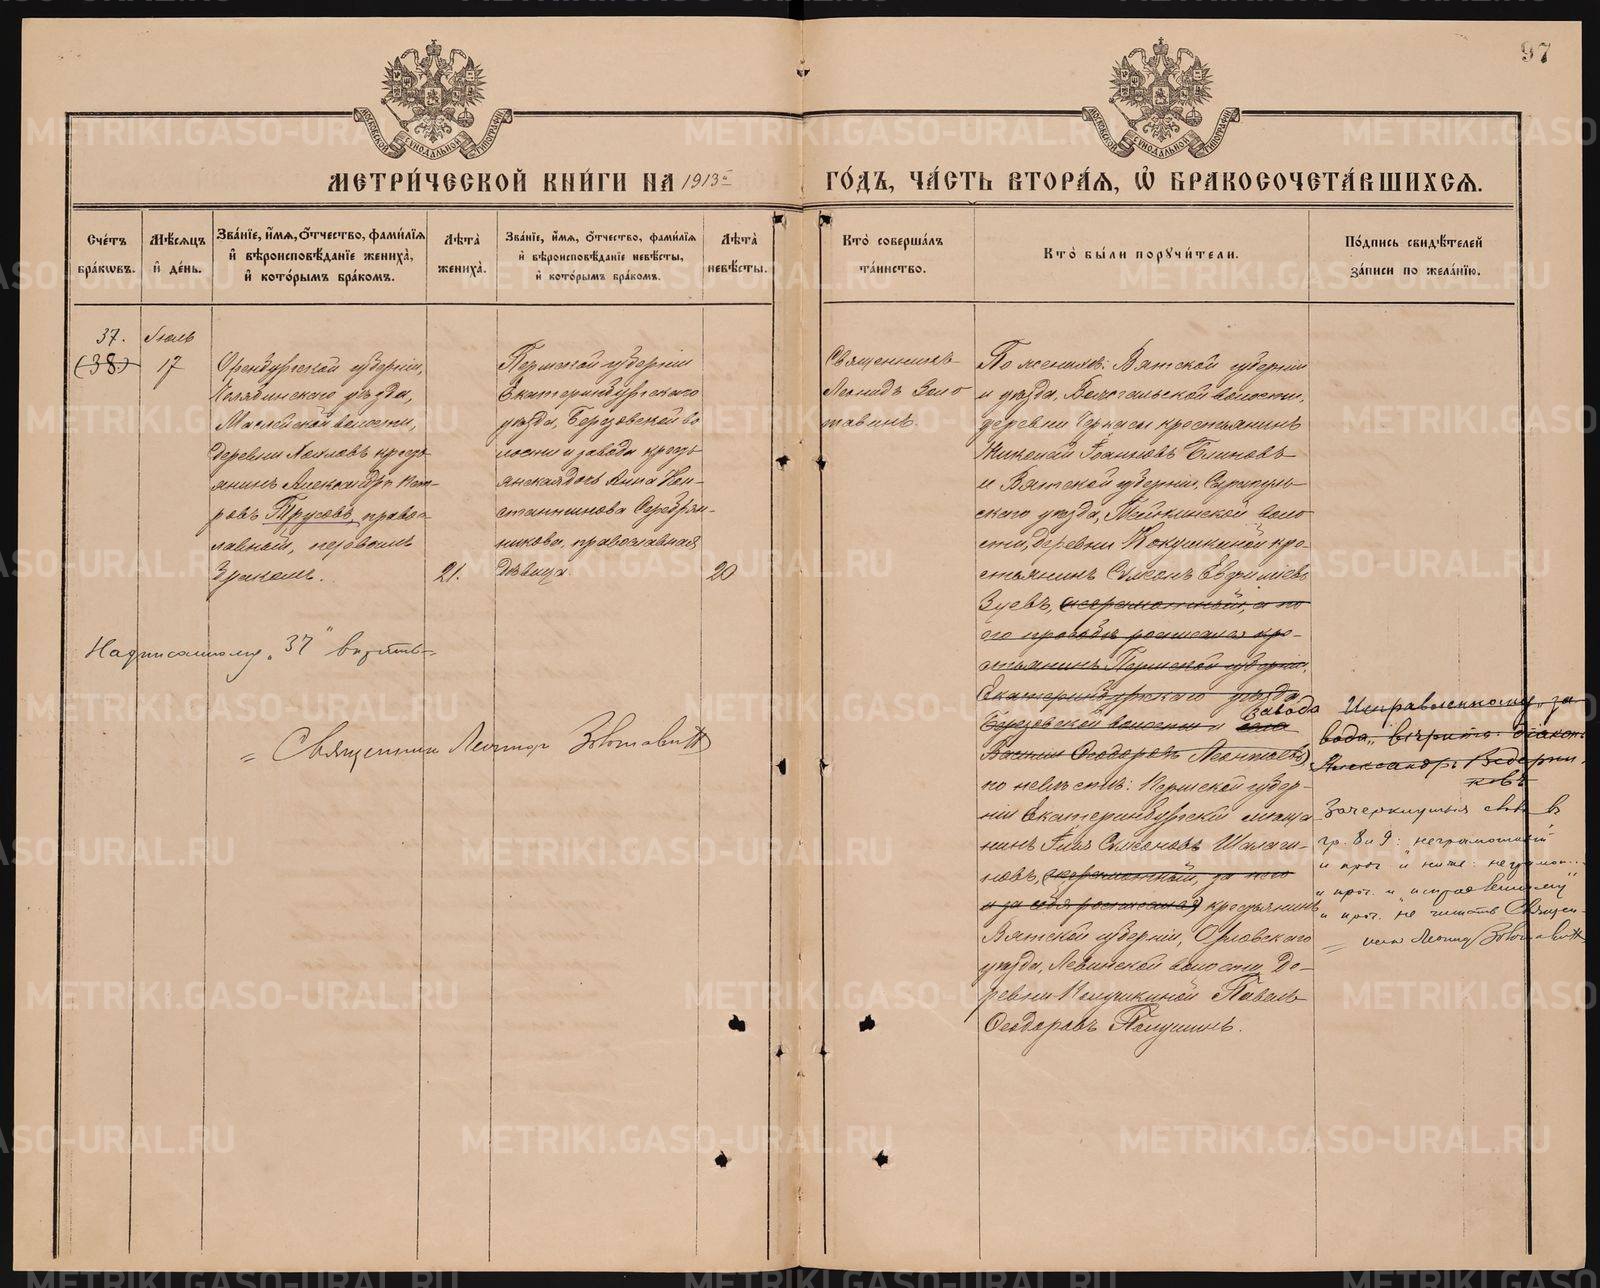 97
МОСКОВСКОЙ СѴНОДАЛЬНОЙ ТИПОГРАФІИ
МОСКОВСКОЙ СѴНОДАЛЬНОЙ ТИПОГРАФІИ
МЕТРИ́ЧЕСКОЙ КНИ́ГИ НА 1913 г.
ГО́ДЪ, ЧА́СТЬ ВТОРА́Ѧ, Ѽ БРАКОСОЧЕТА́ВШИХСѦ.
Сче́тъ
бра́кѡвъ.
Мѣ́сѧцъ
и҆ де́нь.
Зва́нїе, и҆́мѧ, ѻ҆́тчество, фами́лїѧ
и҆ вѣроисповѣ́данїе жениха̀,
и҆ кото́рымъ бра́комъ.
Лѣ́та
жениха̀.
Зва́нїе, и҆́мѧ, ѻ҆́тчество, фами́лїѧ
и҆ вѣроисповѣ́данїе невѣ́сты,
и҆ кото́рымъ бра́комъ.
Лѣ́та
невѣ́сты.
Кто̀ соверша́лъ
та́инство.
Кто̀ бы́ли порꙋчи́тели.
По́дпись свидѣ́телей
за́писи по жела́нїю.
37.
(38)
Іюль
17
Оренбургской губерніи,
Челябинскаго уѣзда,
волости,
деревни кресть-
янинъ Александръ Пет-
ровъ Трусовъ, право-
славный, первымъ
бракомъ.
21.
Пермской губерніи
Екатеринбургскаго
уѣзда, Березовской во
лости и завода кресть
янская дочь Анна Кон-
стантинова Серебрян-
никова, православная
Дѣвица
20
Священникъ
Леонидъ Золо
тавинъ.
По женихѣ: Вятской губерніи
и уѣзда, волости,
деревни крестьянинъ
Николай Іоанновъ Блиновъ
и Вятской губерніи, Сарапуль-
скаго уѣзда, воло
сти, деревни Кокушкиной кре-
стьянинъ Сѵмеонъ
Зуевъ, (неграмотный, а по
его просьбѣ росписался кре-
стьянинъ Пермской губерніи,
Екатеринбургскаго уѣзда
Березовской волости и села завода
Василій Ѳеодоровъ Леонтьевъ)
по невѣстѣ: Пермской губер-
ніи Екатеринбургскій мѣща
нинъ Илія Сѵмеоновъ Шалаги-
новъ, (неграмотный, за него
и за себя росписался) крестьянинъ
Вятской губерніи, Орловскаго
уѣзда, Левинской волости, де-
ревни Павелъ
Ѳеодоровъ
Исправленному „за
вода„ вѣрить. діаконъ
Александръ Ведерни-
ковъ
Зачеркнутыя слова в
гр. 8 и 9: неграмотный
и проч. и ниже:
и проч. и „исправленному„
и проч. не читать Священ-
никъ Леонид Золотавинъ
Надписанному „37„ вѣрить
Священникъ Леонид Золотавинъ
METRIKI.GASO-URAL.RU